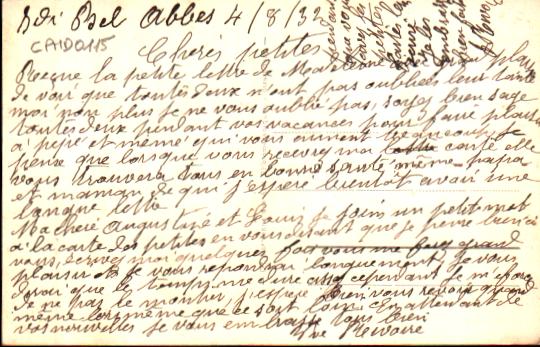 Sidi Bel Abbes 4/8/32
CAID0115
Chères petites
Reçue la petite lettre de Madeleine
de voir que toutes deux n'ont pas oubliées leur tante
moi non plus je ne vous oublie pas, soyez bien sage
toutes deux pendant vos vacances pour faire plaisir
a pépé et mémé qui vous aiment beaucoup. Je
pense que lorsque vous recevrez ma carte elle
vous trouvera tous en bonne santé, même papa
et maman de qui j'espère bientôt avoir une
longue lettre
Ma chère Augustine et Louis je joins un petit mot
à la carte des petites en vous disant que je pense bien à
vous, écrivez moi quelques fois vous me fairez grand
plaisir et je vous repondrai longuement, je vous
dirai que le temps me dure assez cependant je m'efforce
de ne pas le montrer, j'espère bien vous revoir quand
même lors même que ce soit loin. En attendant de
vos nouvelles je vous embrasse tous bien
Revoire